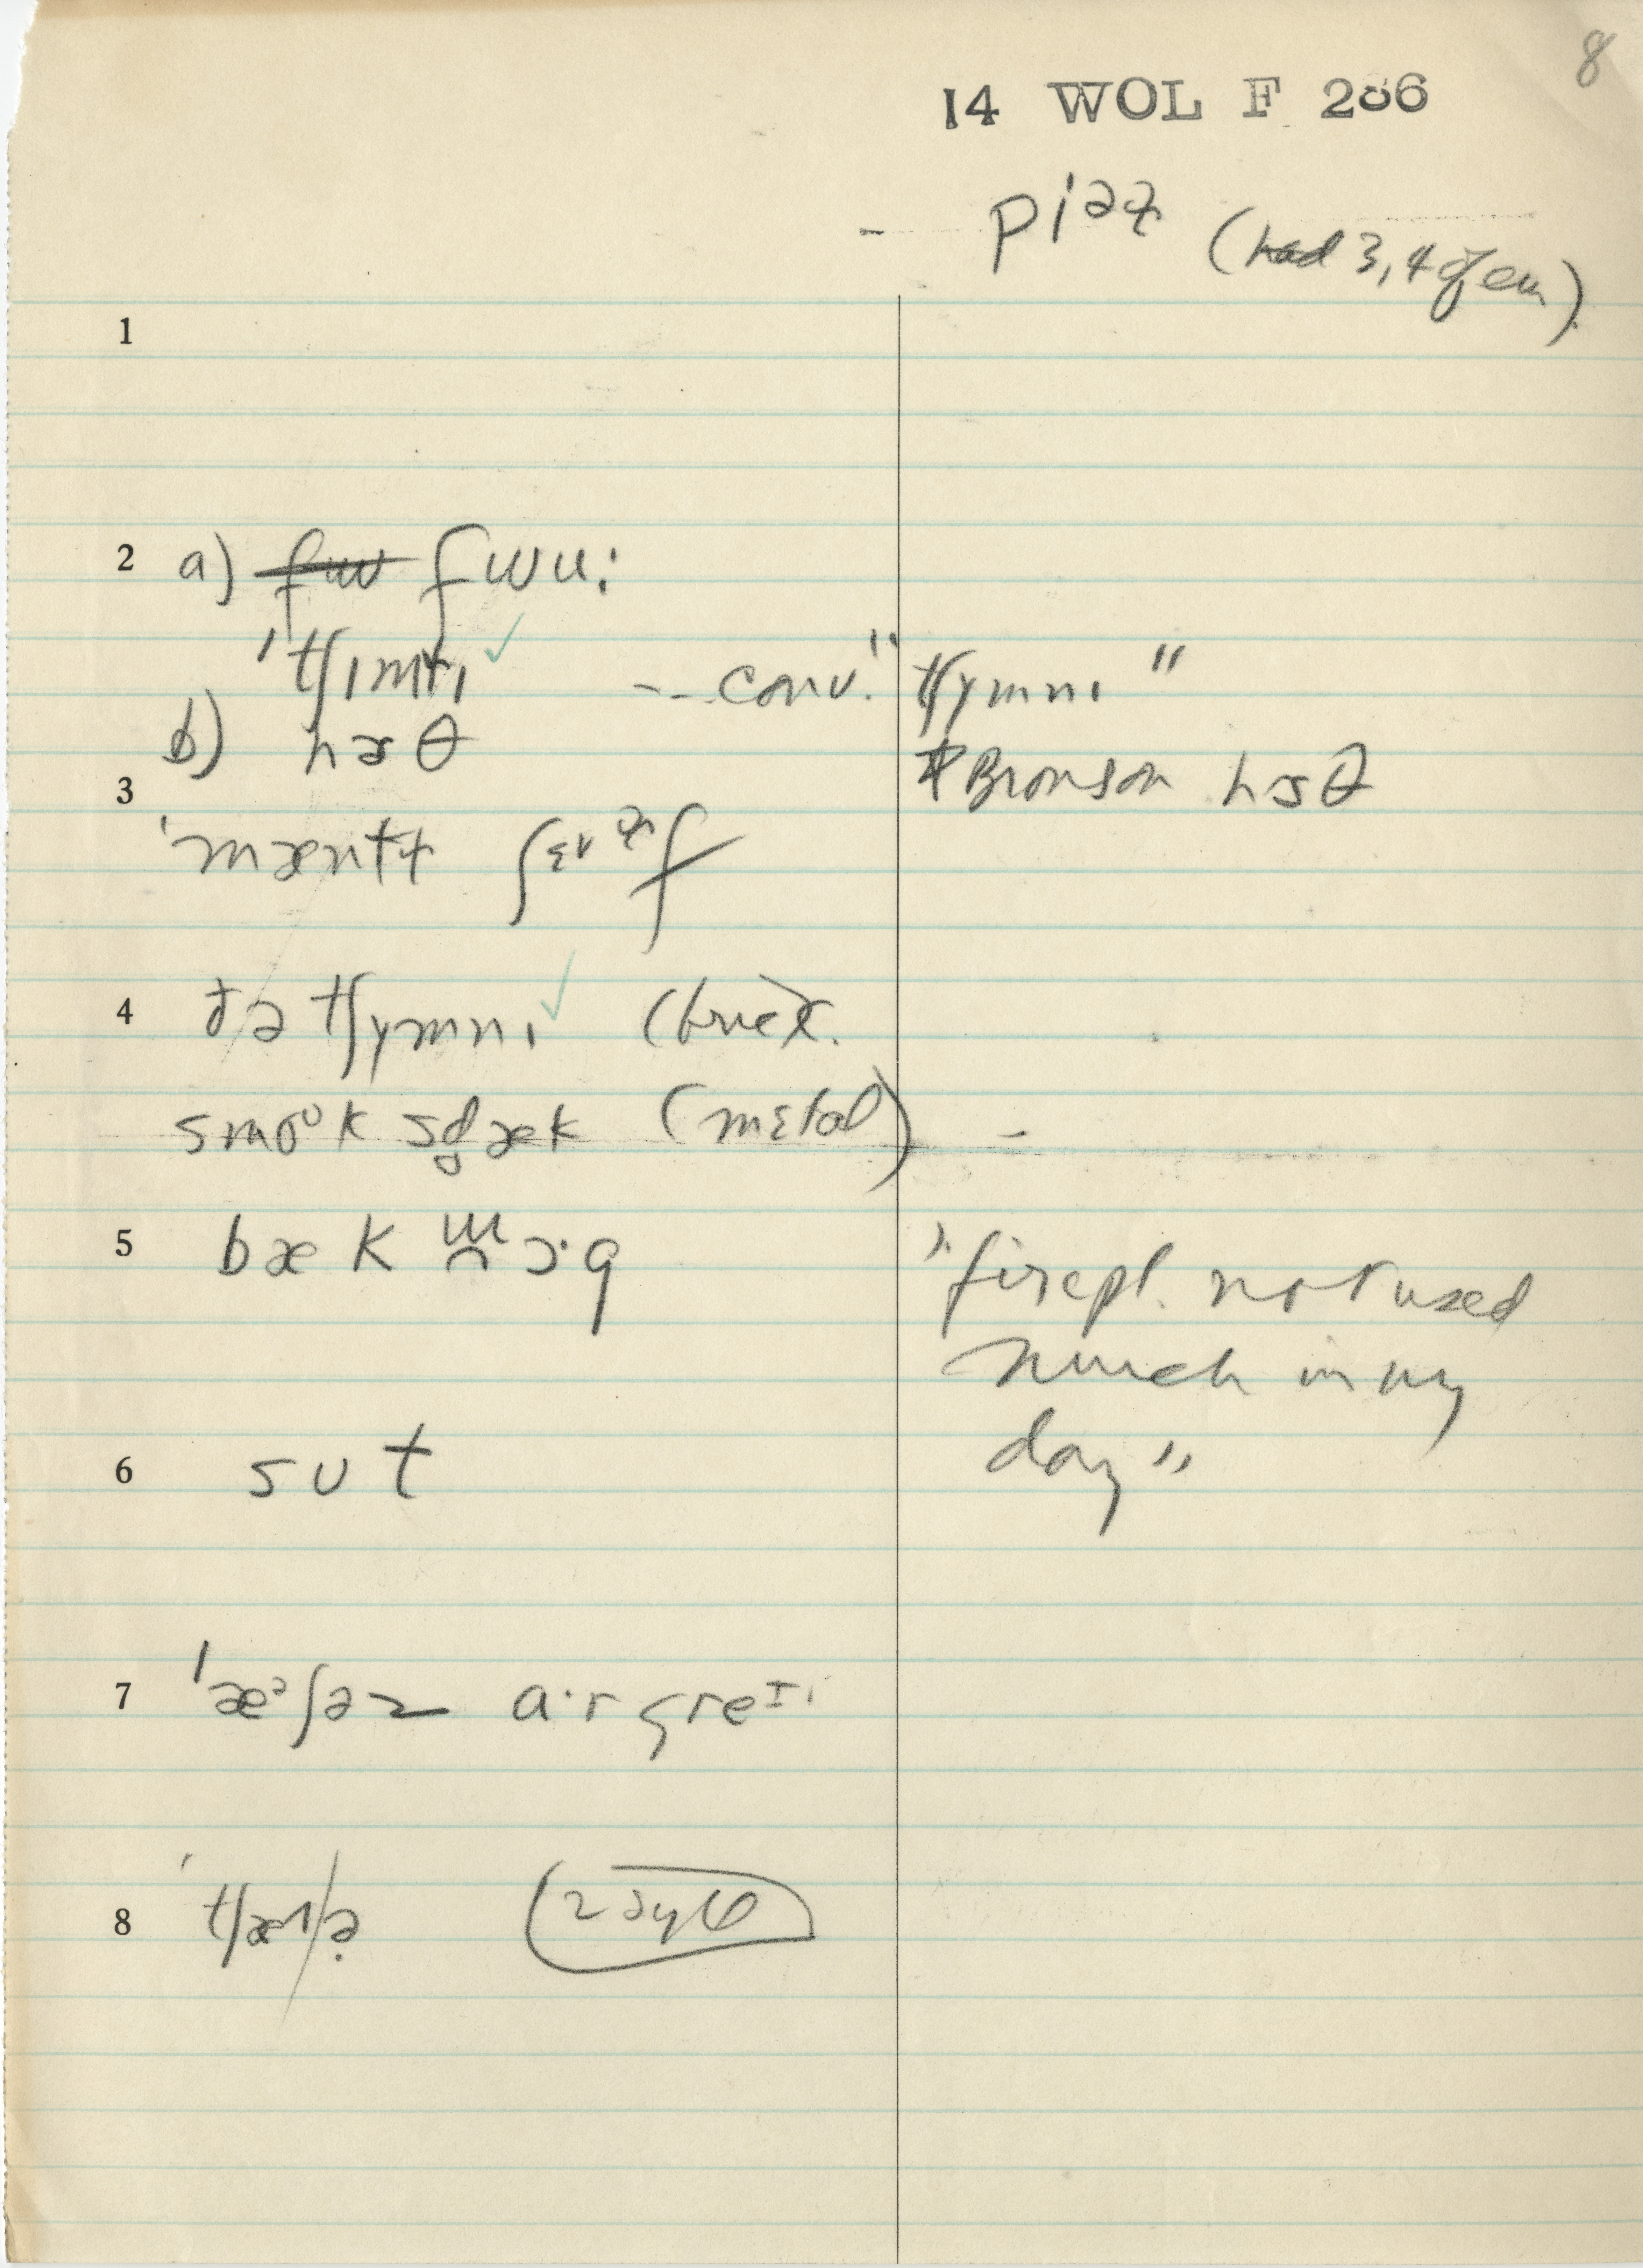 8
14 WOL F 286
- piəz (had 3, 4 of em)
1
2 a) fwu:
ˈtʃɪmɫɪ ✓ -- conv. "tʃymnɪ"
b) hɜθ
*Bronson hɜθ
3
ˈmæntɫ ʃɛɫf
4 ðə tʃymnɪ ✓ (brick.
smoʊk sd̥æk (metal) -
5 bæk lɔ·g
"firepl. not used
much in my
day"
6 sut
7 ˈæᵊʃəz a·r greɪ
8